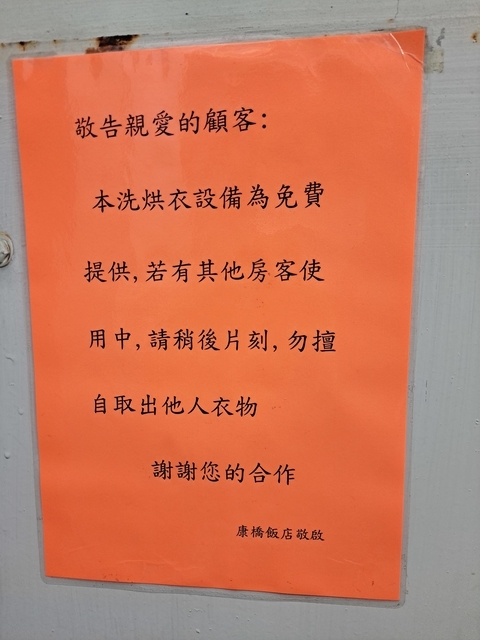 敬告親愛的顧客:
本洗烘衣設備為免費
提供,若有其他房客使
用中,請稍後片刻,勿擅
自取出他人衣物
謝謝您的合作
康橋飯店敬啟